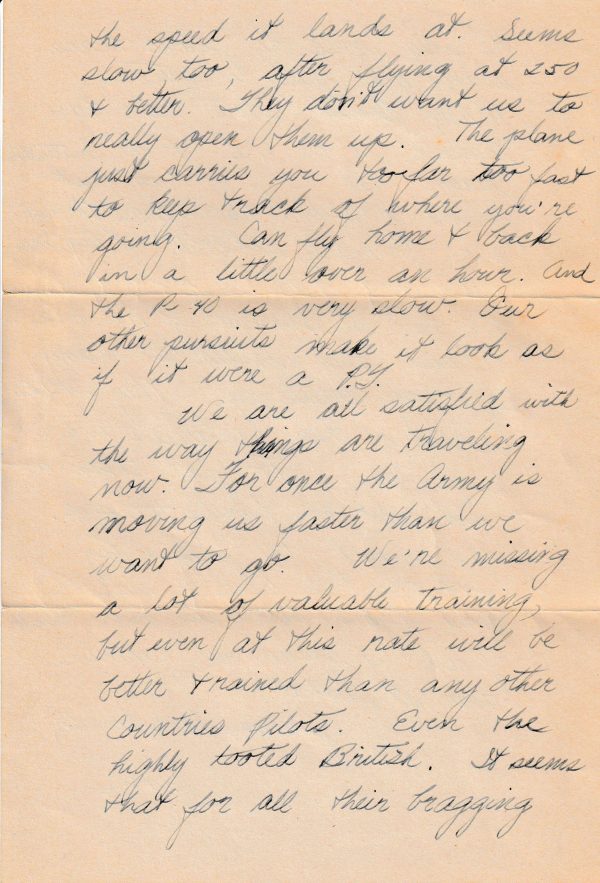 the speed it lands at. Seems
slow, too, after flying at 250
& better. They don't want us to
really open them up. The plane
just carries you too far too fast
to keep track of where you're
going. Can fly home & back
in a little over an hour. And
the P-40 is very slow. Our
other pursuits make it look as
if it were a P.T.
We are all satisfied with
the way things are traveling
now. For once the Army is
moving us faster than we
want to go. We're missing
a lot of valuable training,
but even at this rate will be
better trained than any other
Countries Pilots. Even the
highly tooted British. It seems
that for all their bragging